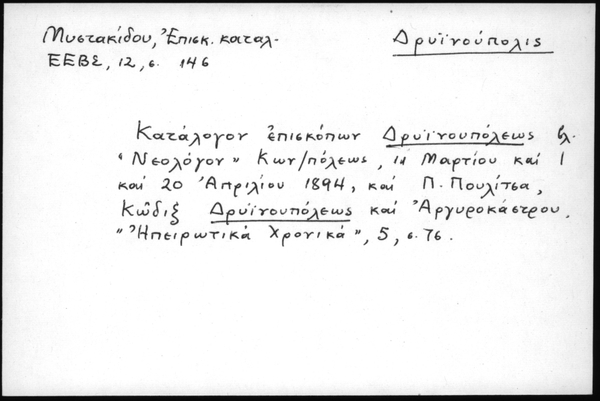 Μυστακίδου, Ἐπισκ. καταλ.
ΕΕΒΣ, 12, σ. 146
Δρυϊνούπολις
Κατάλογον ἐπισκόπων Δρυϊνουπόλεως βλ.
"Νεολόγον" Κων/πόλεως, 11 Μαρτίου καί 1
καί 20 Ἀπριλίου 1894, καί Π. Πουλίτσα,
Κῶδιξ Δρυϊνουπόλεως καί Ἀργυροκάστρου,
"Ἠπειρωτικά Χρονικά", 5, σ. 76.